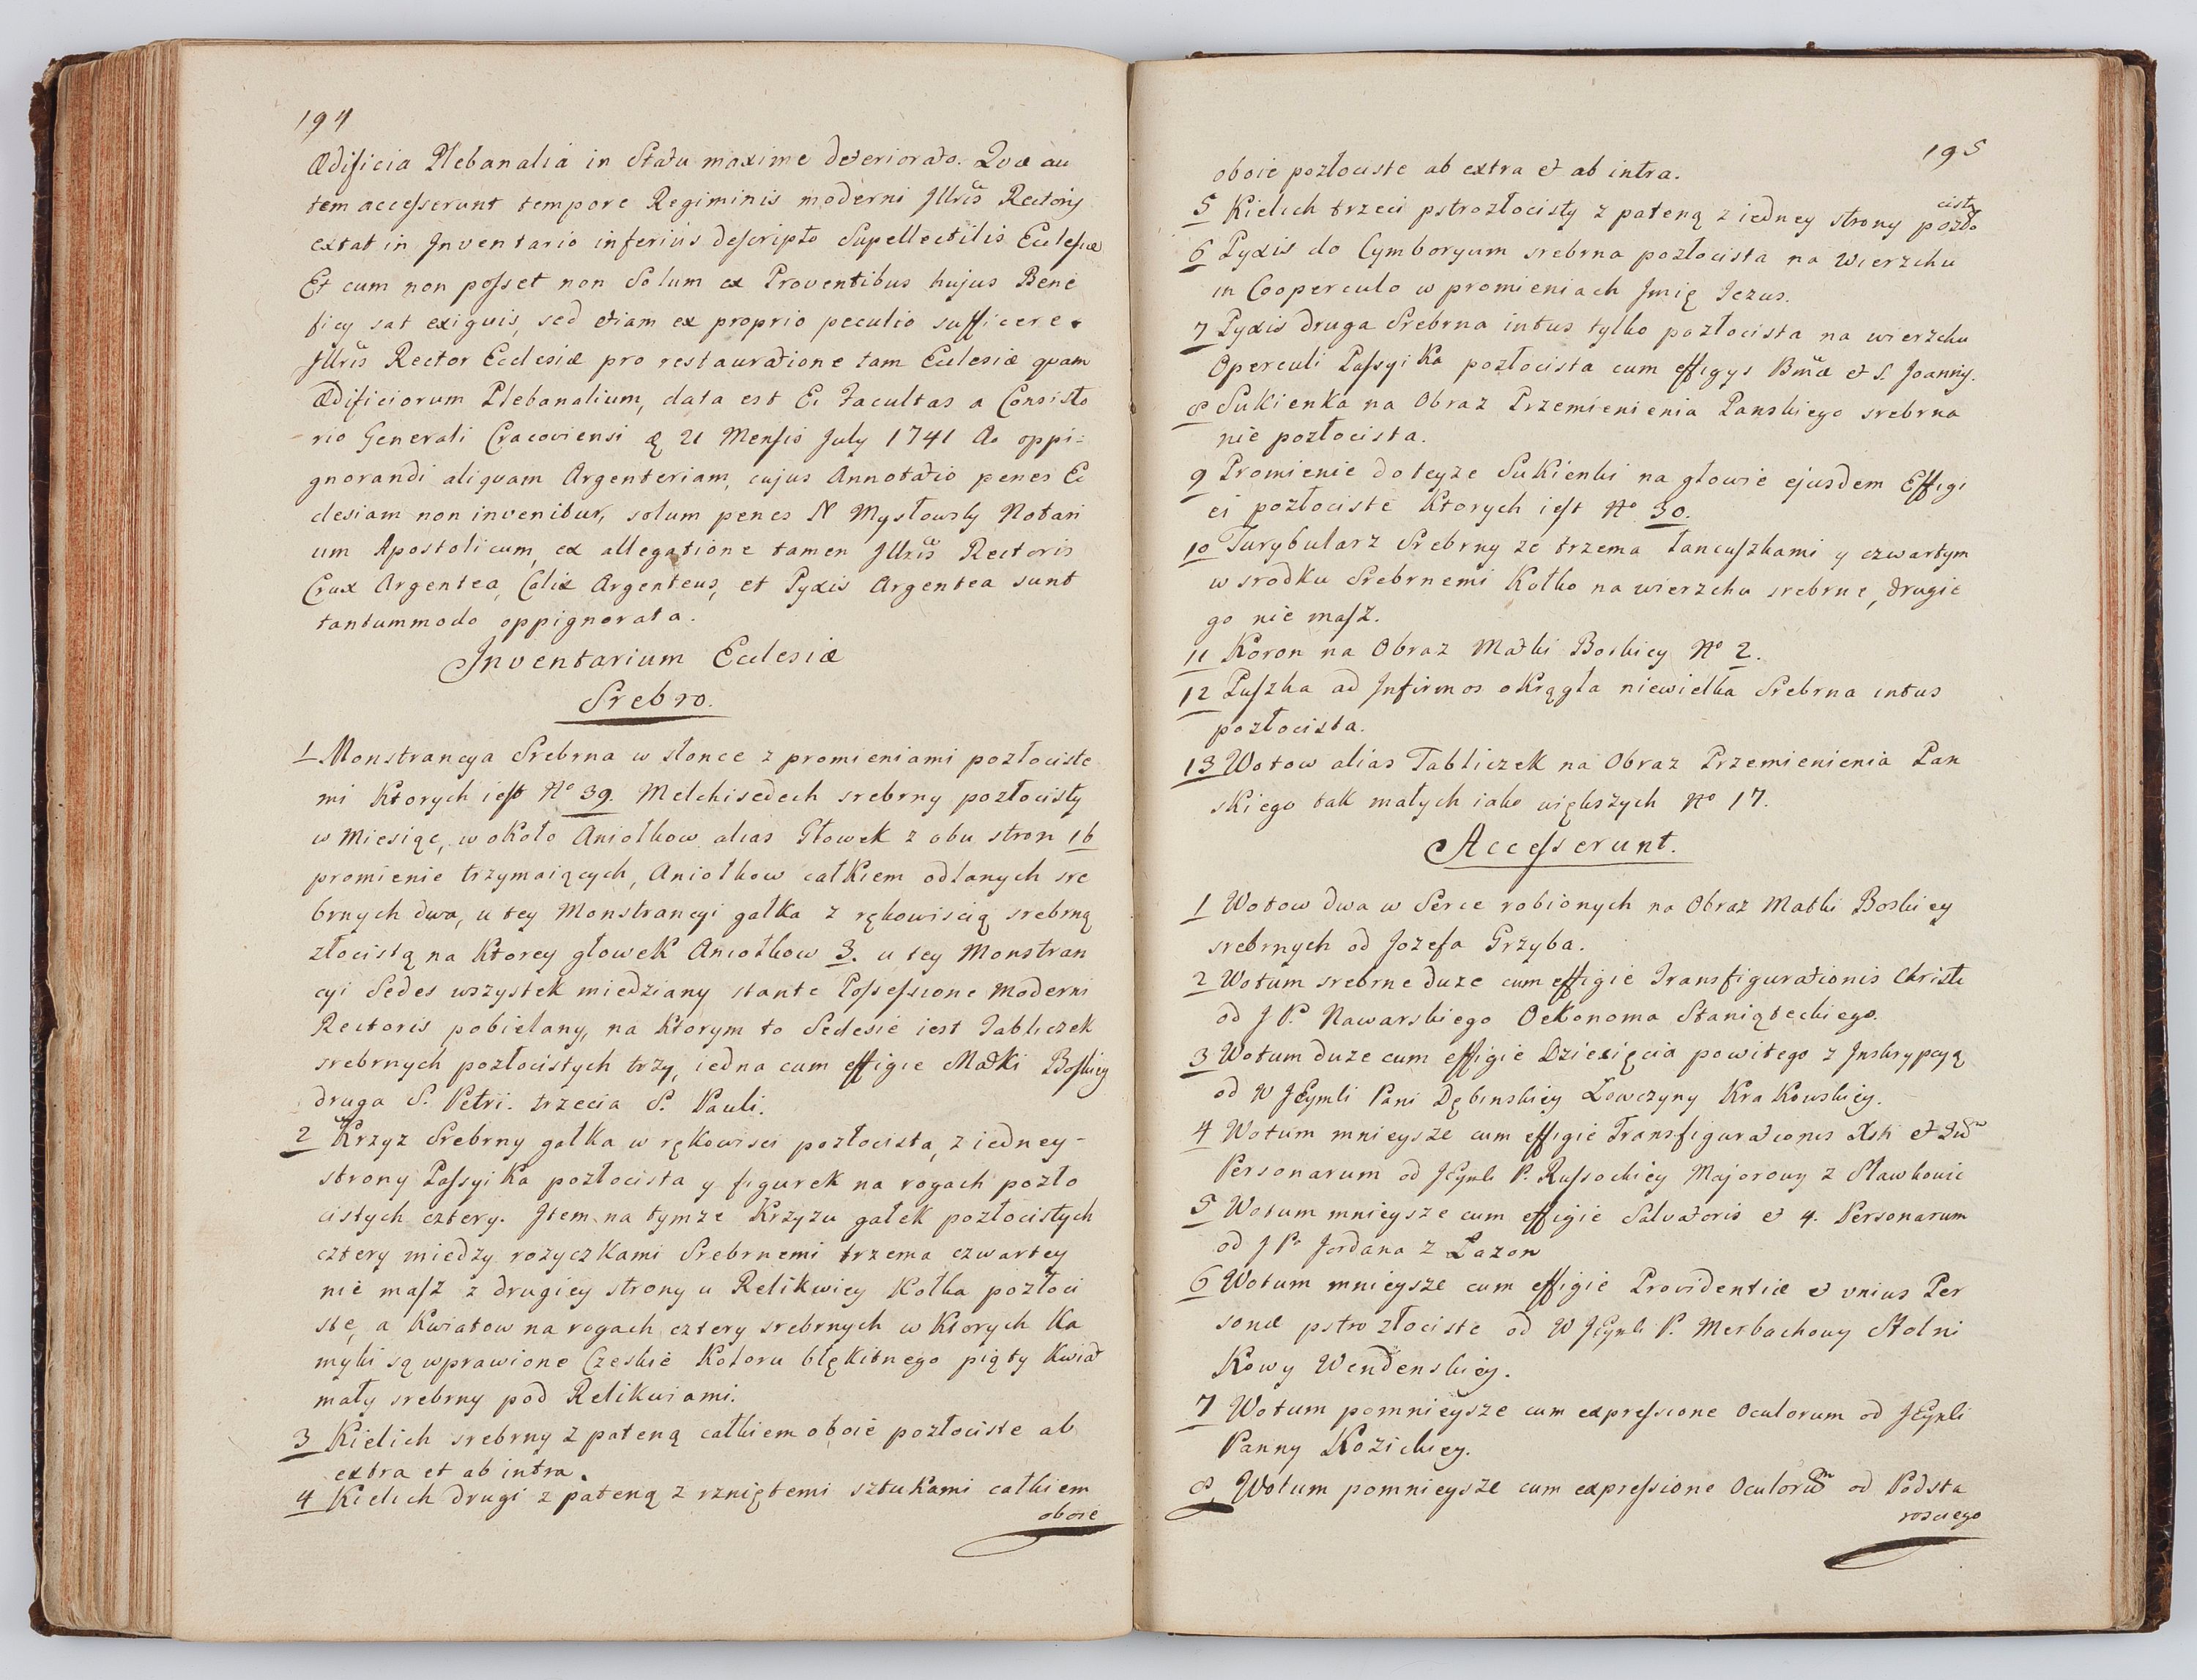 194
Ædificia Plebanalia in Statu maxime deteriorato. Quæ au
tem accesserunt tempore Regiminis moderni Jllris Rectoris
extat in Jnventario inferius descripto Supellectilis Ecclesiæ
Et cum non posset non Solum ex Proventibus hujus Bene
ficij sat exiguis, sed etiam ex proprio peculio sufficere
Jllris Rector Ecclesiæ pro restauratione tam Ecclesiæ quam
Ædificiorum Plebanalium, data est Ei Facultas a Consisto
rio Generali Cracoviensi 21 Mensis July 1741 Ao oppi-
gnorandi aliquam Argenteriam, cujus Annotatio penes Ec
clesiam non invenitur, solum penes N Mysłowsky Notari
um Apostolicum, ex allegatione tamen Jllris Rectoris
Crux Argentea, Calix Argenteus, et Pyxis Argentea sunt
tantummodo oppignorata.
Jnventarium Ecclesiæ
Srebro.
1 Monstrancya Srebrna w słonce z promieniami pozłociste
mi Ktorych iest No 39. Melchisedech srebrny pozłocisty
w Miesiąc, w około Aniołkow alias Głowek z obu stron 16
promienie trzymaiących, Aniołkow całkiem odlanych sre
brnych dwa, u tey Monstrancyi gałka z rękowiscią srebrną
złocistą na Ktorey głowek Aniołkow 3. u tey Monstran
cyi Sedes wszystek miedziany stante Possessione Moderni
Rectoris pobielany, na Ktorym to Sedesie iest Tabliczek
srebrnych pozłocistych trzy, iedna cum effigie Matki Boskiey
druga S. Petri. trzecia S. Pauli.
2 Krzyz Srebrny gałka w rękowisci pozłocista, z iedney-
strony Passyika pozłocista y figurek na rogach pozło
cistych cztery. Jtem na tymze Krzyzu gałek pozłocistych
cztery miedzy rozyczkami Srebrnemi trzema czwartey
nie masz z drugiey strony u Relikwiey Kołka pozłoci
ste, a Kwiatow na rogach cztery srebrnych w Ktorych Ka
myki są wprawione Czeskie Koloru błękitnego piąty Kwiat
mały srebrny pod Relikwiami.
3 Kielich srebrny z pateną całkiem oboie pozłociste ab
extra et ab intra.
4 Kielich drugi z pateną z rzniętemi sztukami całkiem
oboie
195
oboie pozłociste ab extra et ab intra.
5 Kielich trzeci pstrozłocisty z pateną z iedney strony pozło
cistą
6 Pyxis do Cymboryum srebrna pozłocista na wierzchu
in Cooperculo w promieniach Jmię Jezus.
7 Pyxis druga Srebrna intus tylko pozłocista na wierzchu
Operculi Passyika pozłocista cum effigys Bmæ et S. Joannis.
8 Sukienka na Obraz Przemienienia Panskiego srebrna
nie pozłocista.
9 Promienie do teyze Sukienki na głowie ejusdem Effigi
ei pozłociste Ktorych iest No 30.
10 Turybularz Srebrny ze trzema łancuszkami y czwartym
w srodku Srebrnemi Kołko na wierzchu srebrne, drugie
go nie masz.
11 Koron na Obraz Matki Boskiey No 2.
12 Puszka ad Jnfirmos okrągła niewielka Srebrna intus
pozłocista.
13 Wotow alias Tabliczek na Obraz Przemienienia Pan
skiego tak małych iako większych No 17.
Accesserunt.
1 Wotow dwa w Serce robionych na Obraz Matki Boskiey
srebrnych od Jozefa Grzyba.
2 Wotum srebrne duze cum effigie Transfigurationis Christi
od J P. Nawarskiego Oekonoma Staniąteckiego.
3 Wotum duze cum effigie Dziecięcia powitego z Jnskrypcyą
od W JEymli Pani Dębinskiey Łowczyny Krakowskiey.
4 Wotum mnieysze cum effigie Transfigurationis Xsti et
Personarum od JEymli P. Russockiey Majorowy z Sławkowic
5 Wotum mnieysze cum effigie Salvatoris et 4. Personarum
od J Po Jordana z Łazon
6 Wotum mnieysze cum effigie Providentiæ et vnius Per
sonæ pstrozłociste od W JEymli P. Merbachowy Stolni
Kowy Wendenskiey.
7 Wotum pomnieysze cum expressione Oculorum od JEymli
Panny Kozickiey.
8, Wotum pomnieysze cum expressione Oculorum od Podsta
rosciego